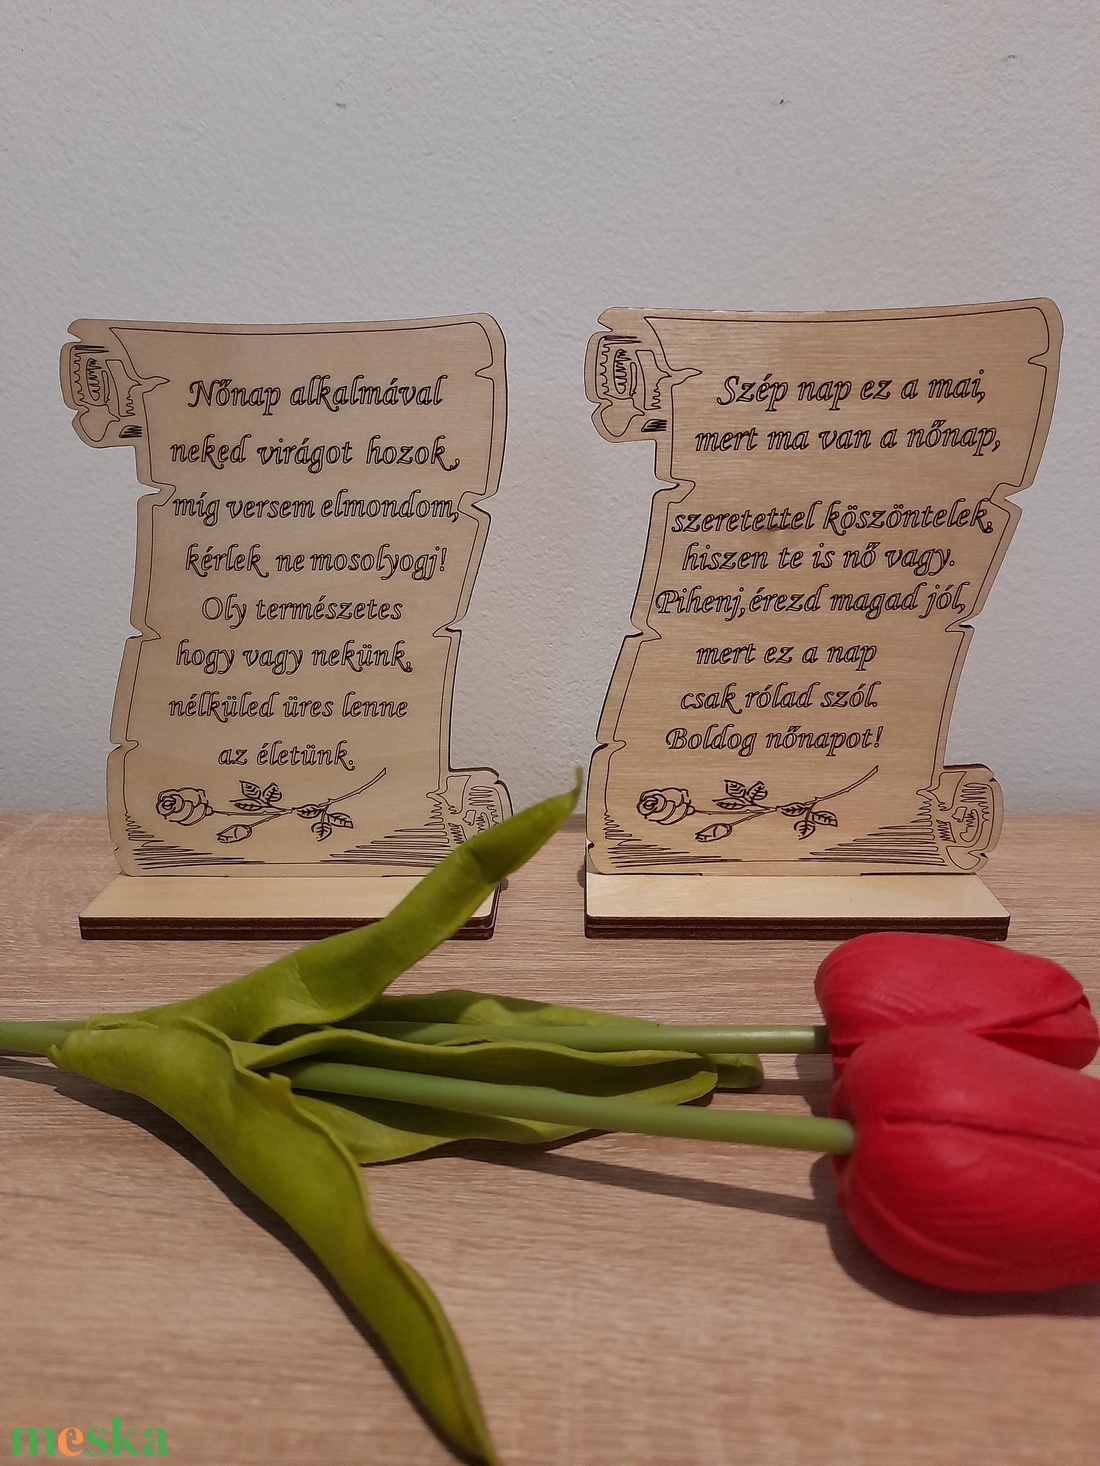 Nőnap alkalmával
neked virágot hozok,
míg versem elmondom,
kérlek ne mosolyogj!
Oly természetes
hogy vagy nekünk,
nélküled üres lenne
az életünk.
Szép nap ez a mai,
mert ma van a nőnap,
szeretettel köszöntelek,
hiszen te is nő vagy.
Pihenj, érezd magad jól,
mert ez a nap
csak rólad szól.
Boldog nőnapot!
meska